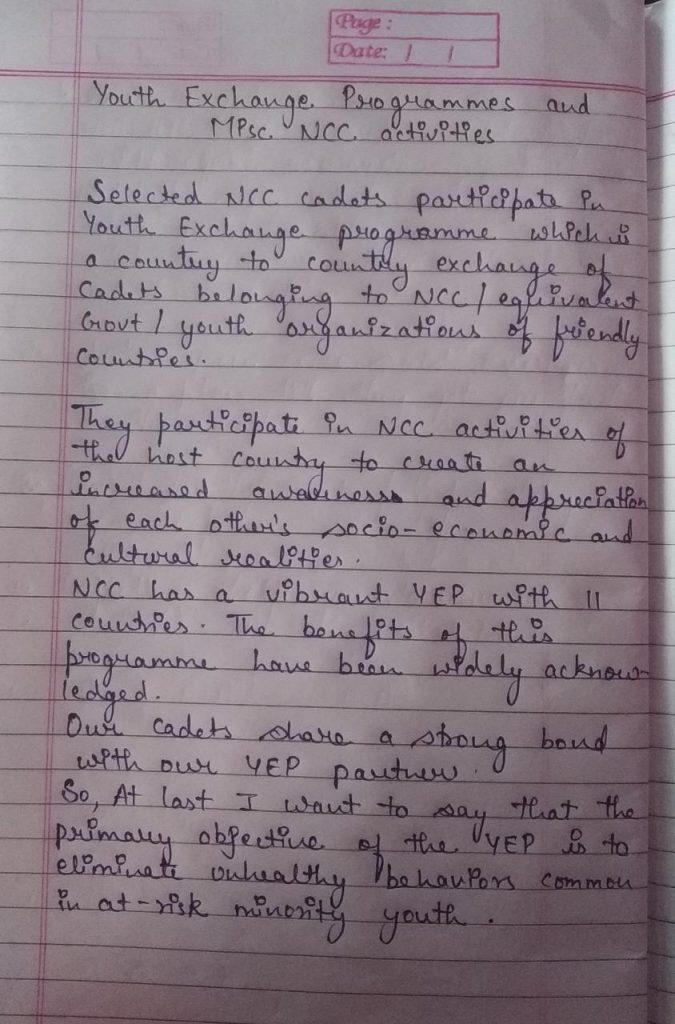 Page :
Date: / /
Youth Exchange Programmes and
MPsc NCC activities
Selected NCC cadets participate in
Youth Exchange programme which is
a country to country exchange of
Cadets belonging to NCC / equivalent
Govt / youth organizations of friendly
Countries.
They participate in NCC activities of
the host country to create an
increased awareness and appreciation
of each other's socio-economic and
cultural realities.
NCC has a vibrant YEP with 11
countries. The benefits of this
programme have been widely acknow-
ledged.
Our cadets share a strong bond
with our YEP partner.
So, At last I want to say that the
primary objective of the YEP is to
eliminate unhealthy behaviors common
in at-risk minority youth.